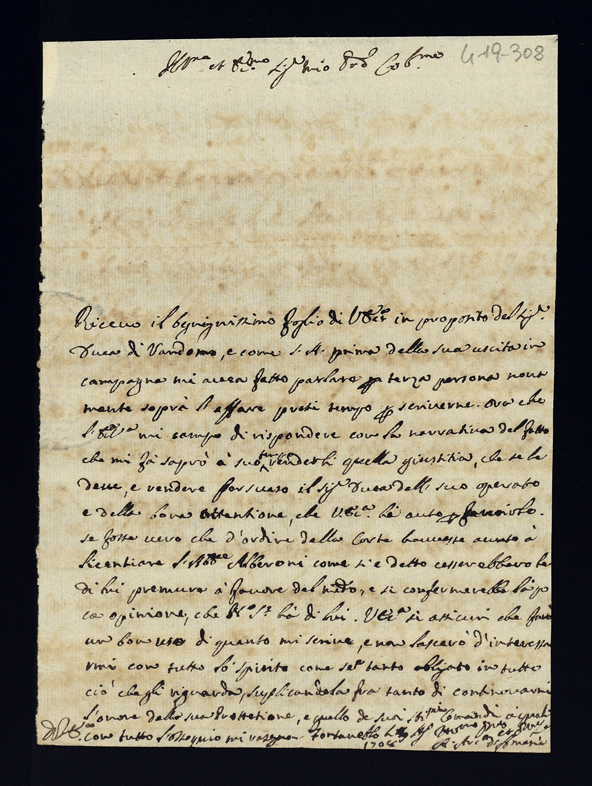 Ill.mo et Ecc.mo Sig.r mio Pro.n Col.mo
419-308
Ricevo il benignissimo foglio di V.Ecc.a in proposito del Sig.r
Duca di Vandomo, e come S. A. prima della sua uscita in
campagna mi avea fatto parlare p terza persona nova
mente soprà l'affare presi tempo p scriverne. ora che
mi campo di rispondere con la narrativa del fatto
che mi fà saprò à suo tempo renderli quella giustitia, che se le
deve, e rendere persuaso il Sig.r Duca dell suo operato
e della bona intentione, che V.Ecc.a hà auto p favorirlo.
se fosse vero che d'ordine della Corte havesse avuto à
licentiare l'Abbate Alberoni come si è detto cesserebbero le
di lui premure à favore del e si confermerebbe la po
ca opinione, che hà di lui. V.Ecc.a si assicuri che farò
un bon uso di quanto mi scrive, e non lascerò d'interessa
rmi con tutto lo spirito come tanto obligato in tutto
ciò che gli riguarda, suplicandola fra tanto di continovarmi
l'onore della sua Protettione, e quello de suoi Comandi à quali
con tutto l'ossequio mi rassegno Fontanello
1705